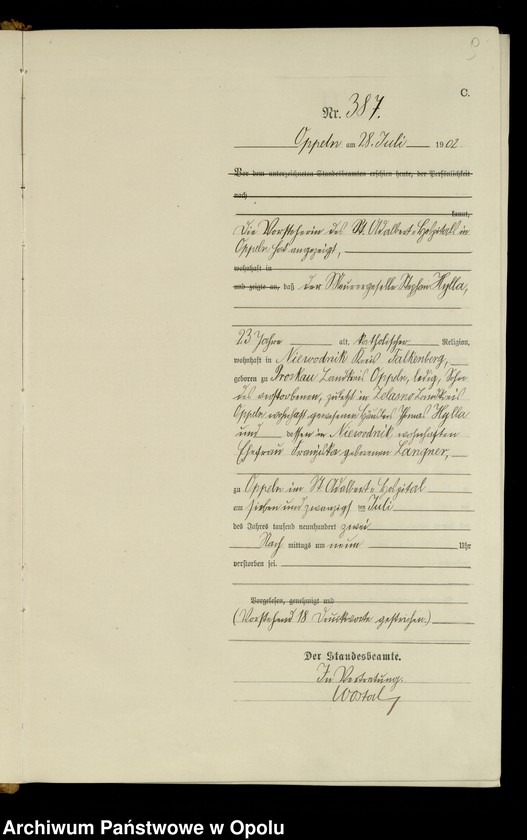 9
C.
Nr. 387.
Oppeln am 28. Juli 1902.
Vor dem unterzeichneten Standesbeamten erschien heute, der Persönlichkeit
nach
kannt,
Die Vorsteherin des St. Adalbert-Hospitals in
Oppeln hat angezeigt,
wohnhaft in
und zeigte an, daß der Maurergeselle Stephan Hylla,
23 Jahre alt, katholischer Religion,
wohnhaft in Niewodnik Kreis Falkenberg,
geboren zu Proskau Landkreis Oppeln, ledig, Sohn
des verstorbenen, zuletzt in Zelasno Landkreis
Oppeln wohnhaft gewesenen Häuslers Thomas Hylla
und dessen in Niewodnik wohnhaften
Ehefrau Franziska geborenen Langner,
zu Oppeln im St. Adalbert-Hospital
am sieben und zwanzigsten Juli
des Jahres tausend neunhundert zwei
Nach mittags um neun Uhr
verstorben sei.
Vorgelesen, genehmigt und
(Vorstehend 18 Druckworte gestrichen.)
Der Standesbeamte.
In Vertretung.
Wostal
Archiwum Państwowe w Opolu